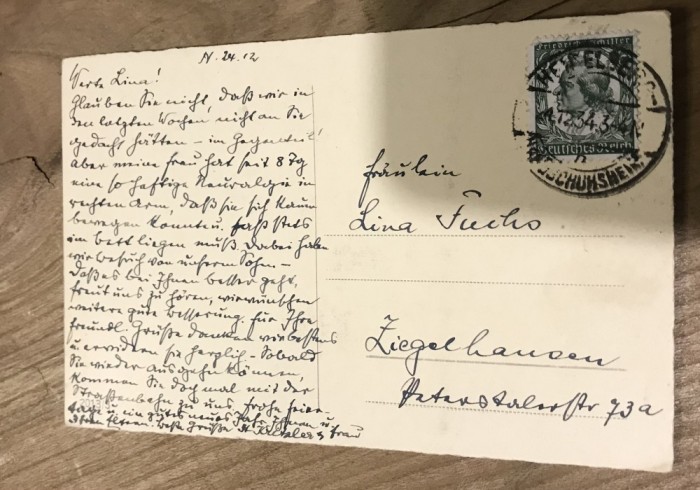 N. 24.12
Werte Lina!
Glauben Sie nicht, daß wir in
den letzten Wochen nicht an Sie
gedacht hätten – im Gegenteil!
Aber meine Frau hat seit 8 Tg
eine so heftige Neuralgie im
rechten Arm, daß sie sich kaum
bewegen konnte u. fast stets
im Bett liegen muß. Dabei haben
wir Besuch von unserm Sohn –
Daß es bei Ihnen besser geht,
freut uns zu hören, wir wünschen
weitere gute Besserung. Für Ihre
freundl. Grüße danken wir bestens
u. erwidern sie herzlich – Sobald
Sie wieder ausgehn können,
kommen Sie doch mal mit der
Straßenbahn zu uns. Frohe Feier-
tage u. ein gutes neues Jahr Ihnen u.
Ihren Eltern. Beste Grüße u. Frau
Friedrich Schiller
Deutsches Reich
HEIDELBERG-
12.34.
HANDSCHUHSHEIM
Fräulein
Lina Fuchs
Ziegelhausen
Peterstalerstr 73a